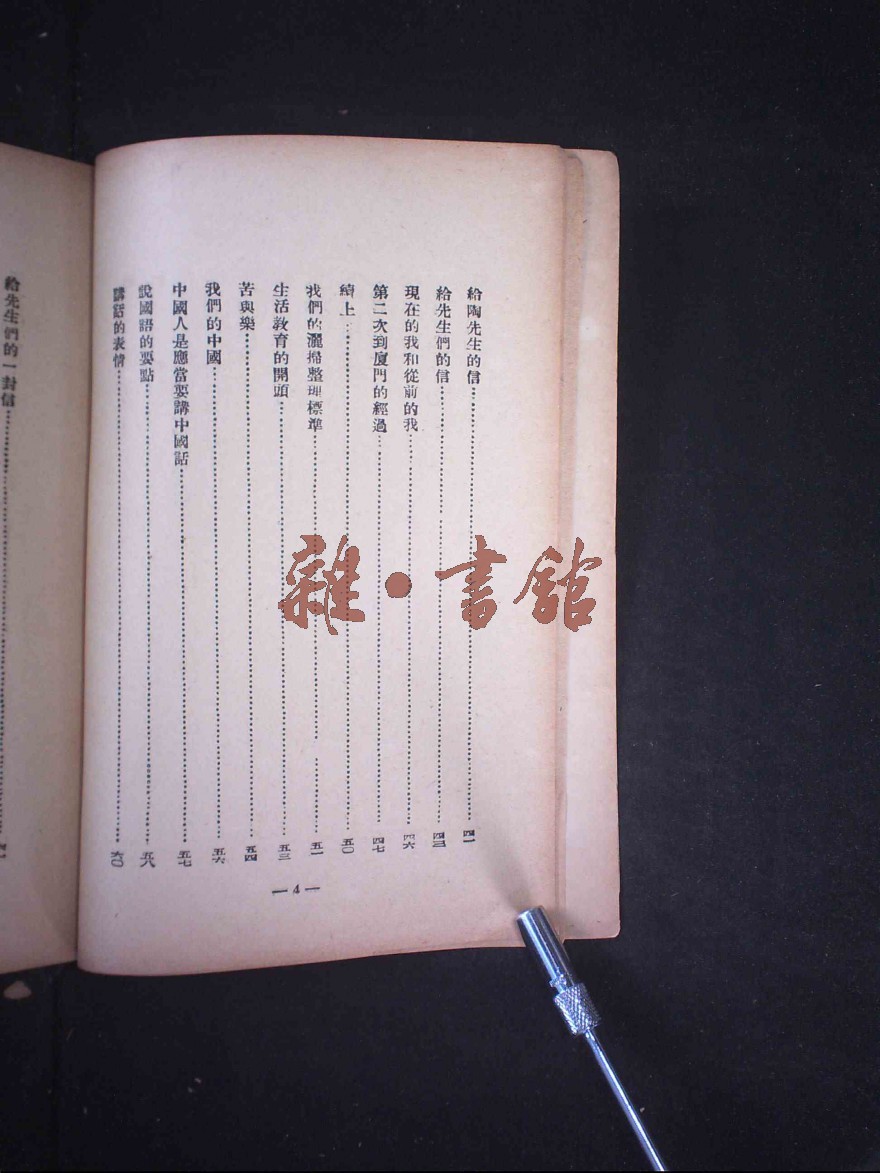 給陶先生的信⋯⋯四一
給先生們的信⋯⋯四三
現在的我和從前的我⋯⋯四六
第二次到廈門的經過⋯⋯四七
續上⋯⋯五〇
我們的灑掃整理標準⋯⋯五一
生活教育的開頭⋯⋯五三
苦與樂⋯⋯五四
我們的中國⋯⋯五六
中國人是應當要講中國話⋯⋯五七
說國語的要點⋯⋯五八
講話的表情⋯⋯六〇
— 4 —
給先生們的一封信⋯⋯
雜・書館